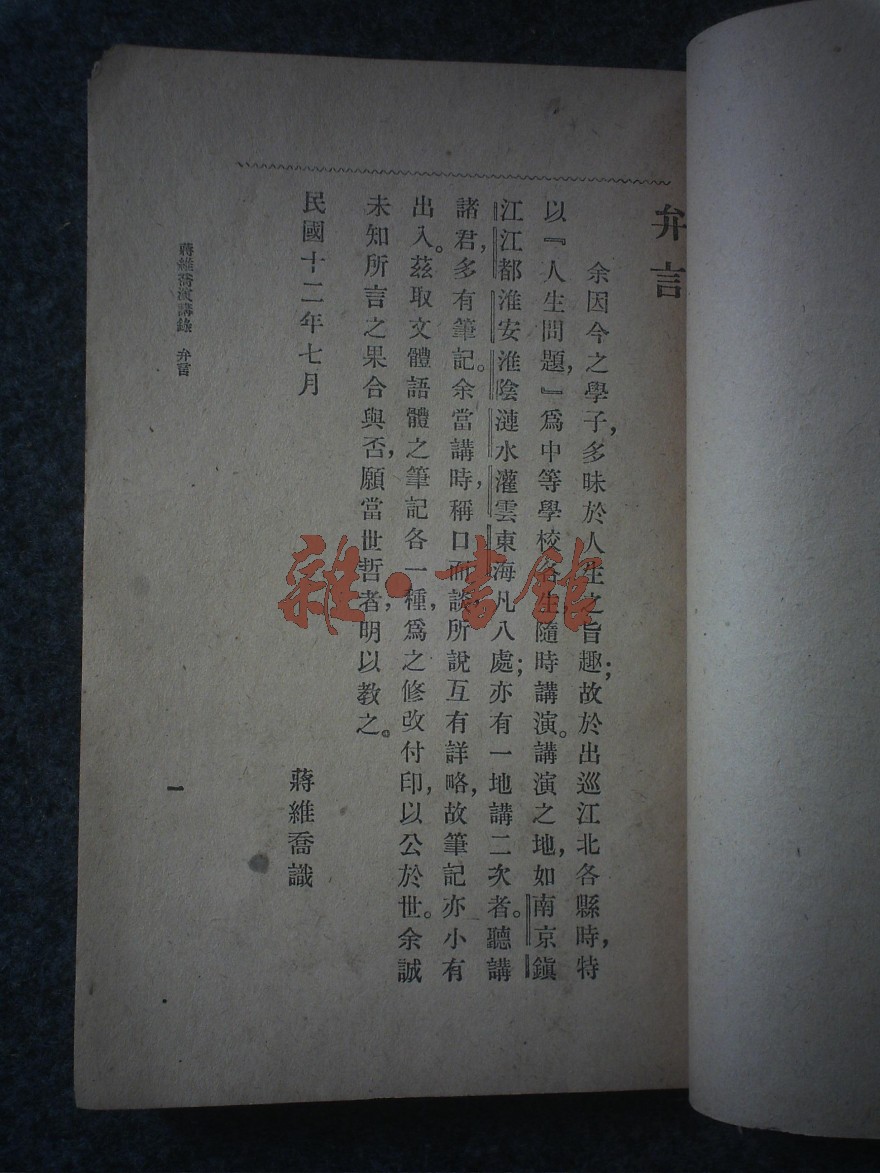 弁言
余因今之學子，多昧於人生之旨趣；故於出巡江北各縣時，特
以『人生問題，』爲中等學校各生隨時講演。講演之地，如南京鎭
江江都淮安淮陰漣水灌雲東海凡八處；亦有一地講二次者。聽講
諸君，多有筆記。余當講時，稱口而談，所說互有詳略，故筆記亦小有
出入。茲取文體語體之筆記各一種，爲之修改付印，以公於世。余誠
未知所言之果合與否，願當世哲者，明以教之。
民國十二年七月
蔣維喬識
蔣維喬演講錄 弁言
一
雜·書館